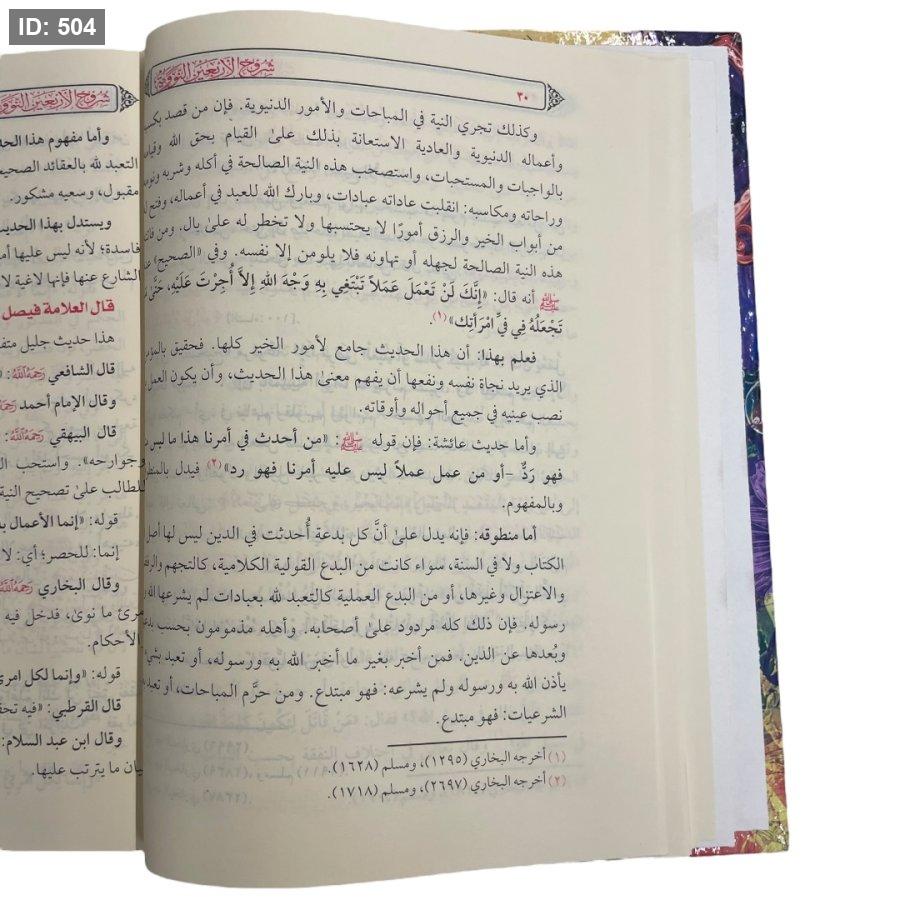 ID: 504
شروح الأربعين النووية
٣٠
وكذلك تجري النية في المباحات والأمور الدنيوية. فإن من قصد بكسبه
وأعماله الدنيوية والعادية الاستعانة بذلك علىٰ القيام بحق الله وقيامه
بالواجبات والمستحبات، واستصحب هذه النية الصالحة في أكله وشربه ونومه
وراحاته ومكاسبه: انقلبت عاداته عبادات، وبارك الله للعبد في أعماله، وفتح
من أبواب الخير والرزق أمورًا لا يحتسبها ولا تخطر له علىٰ بال. ومن فاتته
هذه النية الصالحة لجهله أو تهاونه فلا يلومن إلا نفسه. وفي «الصحيح»
ﷺ أنه قال: «إِنَّكَ لَنْ تَعْمَلَ عَمَلاً تَبْتَغِي بِهِ وَجْهَ اللهِ إِلاَّ أُجِرْتَ عَلَيْهِ، حَتَّىٰ
تَجْعَلُهُ فِي فِيِّ امْرَأَتِكَ»(١).
فعلم بهذا: أن هذا الحديث جامع لأمور الخير كلها. فحقيق بالمؤمن
الذي يريد نجاة نفسه ونفعها أن يفهم معنىٰ هذا الحديث، وأن يكون العمل
نصب عينيه في جميع أحواله وأوقاته.
وأما حديث عائشة: فإن قوله ﷺ: «من أحدث في أمرنا هذا ما ليس
فهو رَدٌّ -أو من عمل عملاً ليس عليه أمرنا فهو رد»(٢) فيدل بالمنطوق
وبالمفهوم.
أما منطوقه: فإنه يدل علىٰ أنَّ كل بدعة أُحدثت في الدين ليس لها أصل
الكتاب ولا في السنة، سواء كانت من البدع القولية الكلامية، كالتجهم والرفض
والاعتزال وغيرها، أو من البدع العملية كالتعبد لله بعبادات لم يشرعها الله
رسوله. فإن ذلك كله مردود علىٰ أصحابه. وأهله مذمومون بحسب
وبُعدها عن الدين. فمن أخبر بغير ما أخبر الله به ورسوله، أو تعبد بشيء
يأذن الله به ورسوله ولم يشرعه: فهو مبتدع. ومن حرَّم المباحات، أو تعبد
الشرعيات: فهو مبتدع.
(١) أخرجه البخاري (١٢٩٥)، ومسلم (١٦٢٨).
(٢) أخرجه البخاري (٢٦٩٧)، ومسلم (١٧١٨).
شروح الأربعين النووية
وأما مفهوم هذا
التعبد لله بالعقائد الصحيحة
مقبول، وسعيه مشكور.
ويستدل بهذا الحديث
فاسدة؛ لأنه ليس عليها
الشارع عنها فإنها لاغية
قال العلامة فيصل
هذا حديث جليل
قال الشافعي رَحِمَهُ اللَّهُ:
وقال الإمام أحمد رَحِمَهُ اللَّهُ
قال البيهقي رَحِمَهُ اللَّهُ:
وجوارحه». واستحب
للطالب علىٰ تصحيح النية
قوله: «إنما الأعمال
إنما: للحصر؛ أي: لا
وقال البخاري رَحِمَهُ اللَّهُ
امرئ ما نوىٰ، فدخل فيه
الأحكام.
قوله: «وإنما لكل امرئ
قال القرطبي: «فيه
وقال ابن عبد السلام:
بيان ما يترتب عليها.